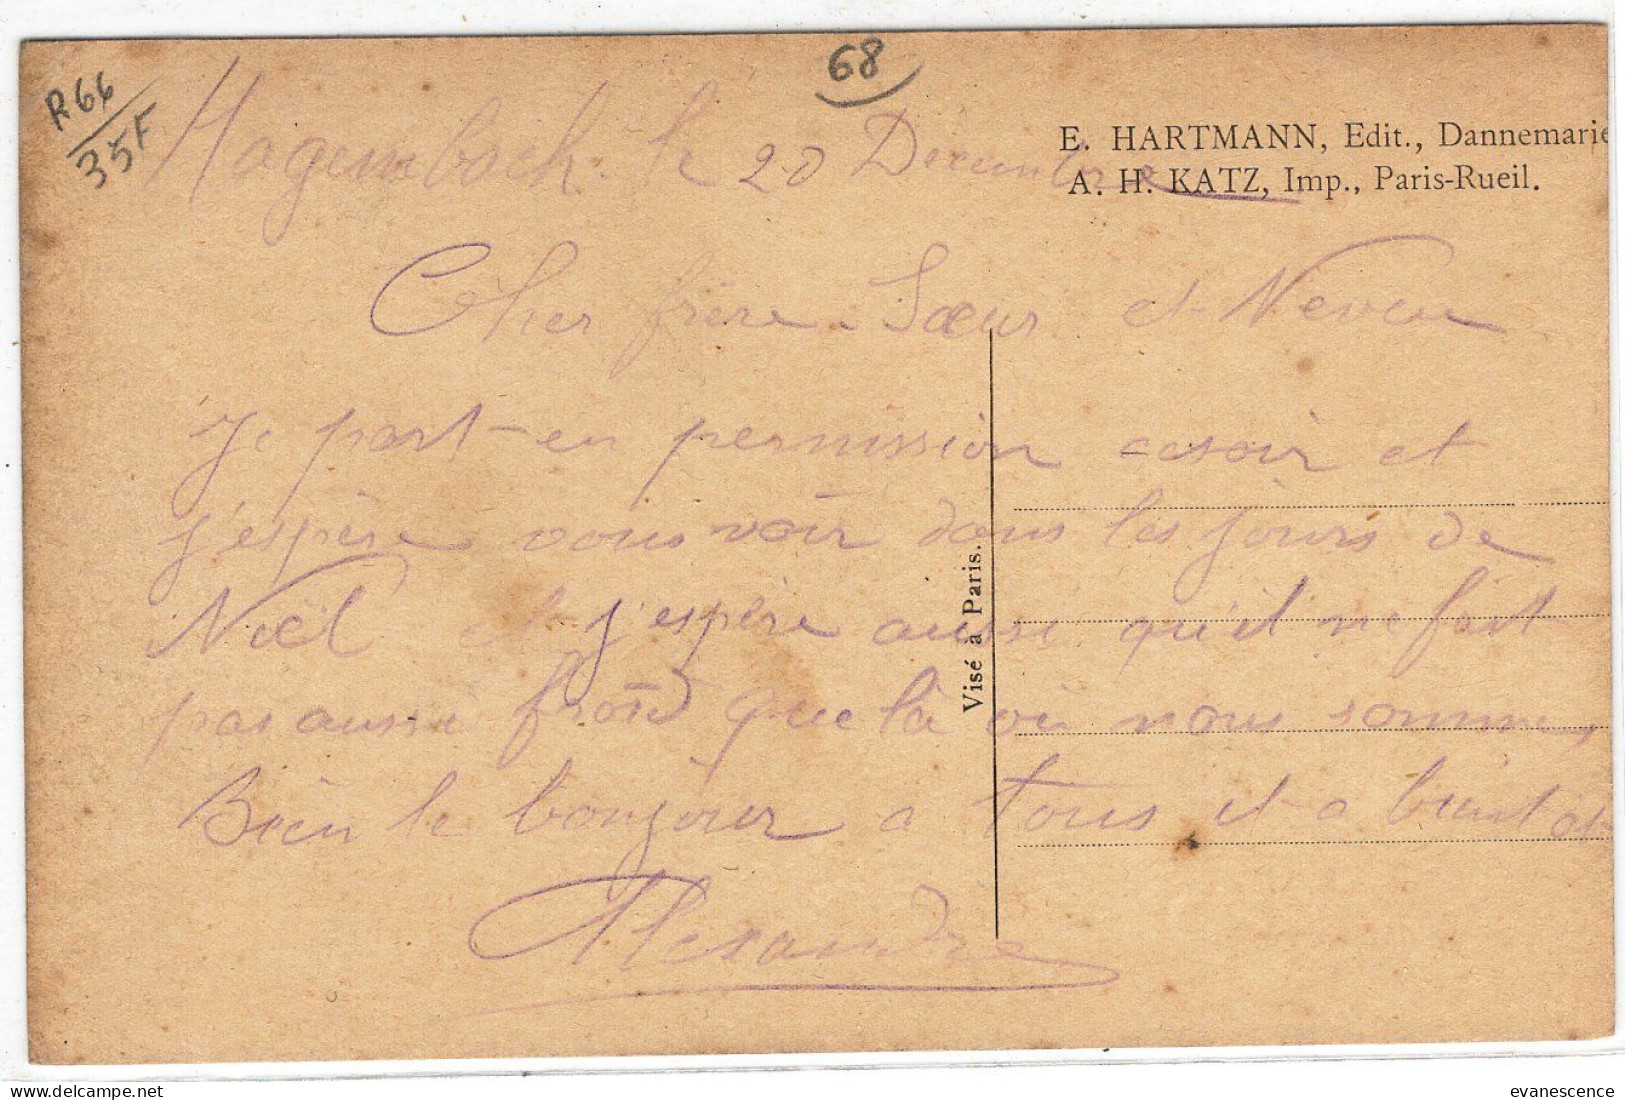 R66
35F
68
E. HARTMANN, Edit., Dannemarie
A. H. KATZ, Imp., Paris-Rueil.
Hagembach. le 20 Décembre
Cher frère. Sœur et Neveu
Je part en permission cesoir et
j'espère vous voir dans les jours de
Noël et j'espère aussi qu'il ne fait
pas aussi froid que là où nous somme,
Bien le bonjour a tous et a bientot
Alexandre
Visé à Paris.
evanescence